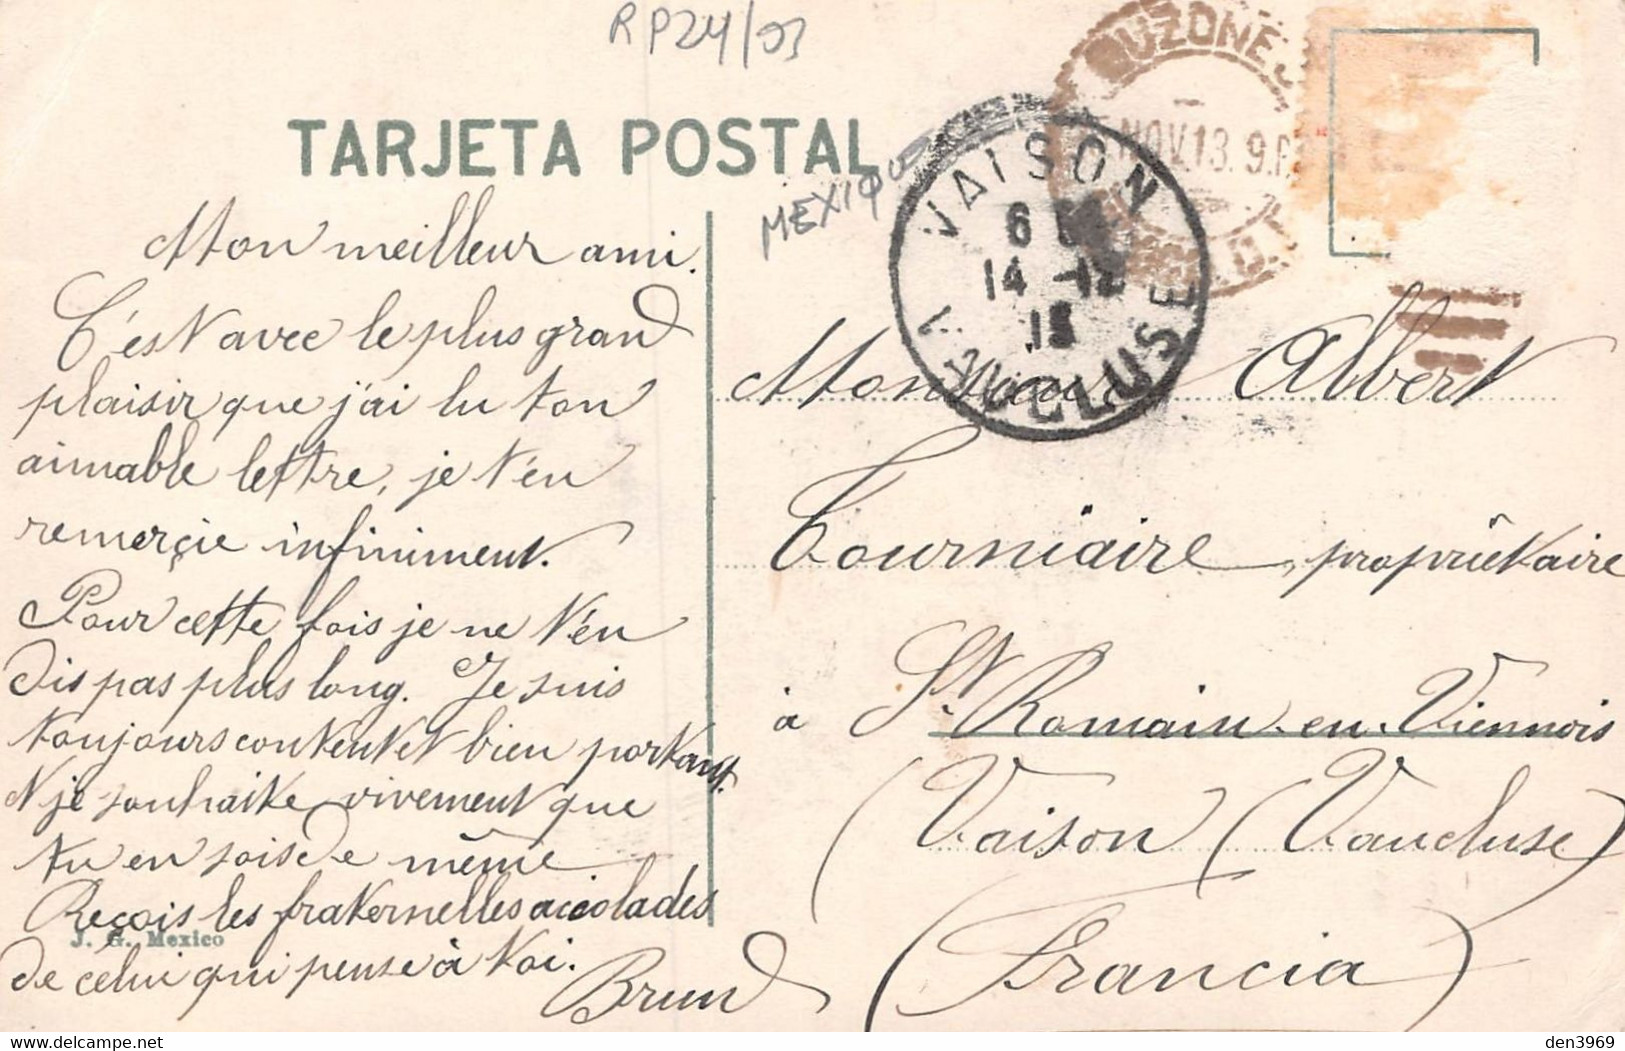 RP24/93
TARJETA POSTAL
MEXIQUE
BUZONES
NOV.13. 9.P.
VAISON
6
14 -12
13
VAUCLUSE
Mon meilleur ami.
C'est avec le plus grand
plaisir que j'ai lu ton
aimable lettre, je t'en
remerçie infiniment.
Pour cette fois je ne t'en
dis pas plus long. Je suis
toujours content et bien portant.
et je souhaite vivement que
tu en sois de même
Reçois les fraternelles accolades
de celui qui pense à toi.
Brun
J. G. Mexico
Monsieur Albert
Tourniaire, propriètaire
à St. Romain-en-Viennois
(Vaison (Vaucluse)
(Francia)
den3969